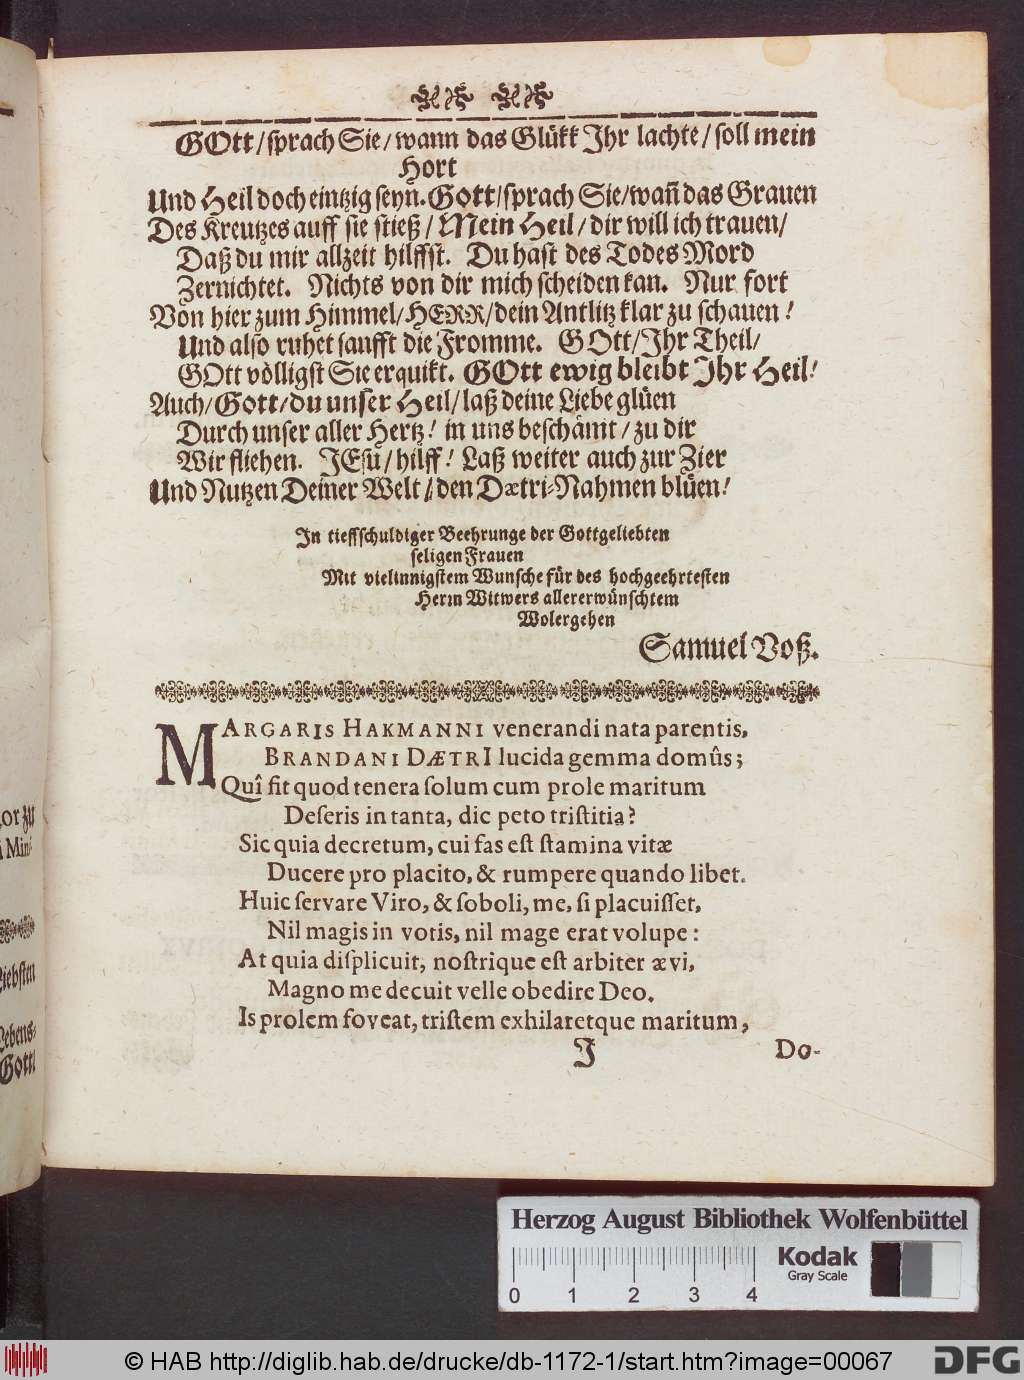 GOtt/sprach Sie/wann das Glükk Jhr lachte/soll mein
Hort
Und Heil doch eintzig seyn. Gott/sprach Sie/wañ das Grauen
Des Kreutzes auff sie stieß/Mein Heil/dir will ich trauen/
Daß du mir allzeit hilffst. Du hast des Todes Mord
Zernichtet. Nichts von dir mich scheiden kan. Nur fort
Von hier zum Himmel/HERR/dein Antlitz klar zu schauen!
Und also ruhet saufft die Fromme. GOtt/Jhr Theil/
GOtt völligst Sie erquikt. GOtt ewig bleibt Jhr Heil!
Auch/Gott/du unser Heil/laß deine Liebe glüen
Durch unser aller Hertz! in uns beschämt/zu dir
Wir fliehen. JEsu/hilff! Laß weiter auch zur Zier
Und Nutzen Deiner Welt/den Dætri-Nahmen blüen!
Jn tieffschuldiger Beehrunge der Gottgeliebten
seligen Frauen
Mit vielinnigstem Wunsche für des hochgeehrtesten
Herrn Witwers allererwünschtem
Wolergehen
Samuel Voß.
MARGARIS HAKMANNI venerandi nata parentis,
BRANDANI DÆTRI lucida gemma domûs;
Quî fit quod tenera ſolum cum prole maritum
Deſeris in tanta, dic peto triſtitia?
Sic quia decretum, cui fas eſt ſtamina vitæ
Ducere pro placito, & rumpere quando libet.
Huic ſervare Viro, & ſoboli, me, ſi placuiſſet,
Nil magis in votis, nil mage erat volupe:
At quia diſplicuit, noſtrique eſt arbiter ævi,
Magno me decuit velle obedire Deo.
Is prolem foveat, triſtem exhilaretque maritum,
J Do-
or zu
Mini-
Liebsten
Lebens-
Gott!
Herzog August Bibliothek Wolfenbüttel
Kodak
Gray Scale
0 1 2 3 4
© HAB http://diglib.hab.de/drucke/db-1172-1/start.htm?image=00067
DFG